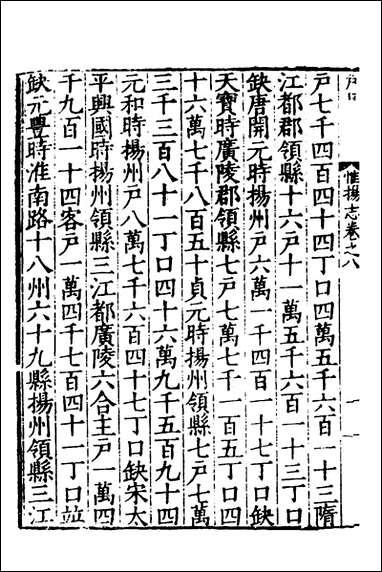 戶口
惟揚志卷之八
戶七千四百四十四丁口四萬五千六百一十三隋
江都郡領縣十六戶十一萬五千六百一十三丁口
缺唐開元時揚州戶六萬一千四百一十七丁口缺
天寶時廣陵郡領縣七戶七萬七千一百五丁口四
十六萬七千八百五十貞元時揚州領縣七戶七萬
三千三百八十一丁口四十六萬九千五百九十四
元和時揚州戶八萬七千六百四十七丁口缺宋太
平興國時揚州領縣三江都廣陵六合主戶一萬四
千九百一十四客戶一萬四千七百四十一丁口並
缺元豐時淮南路十八州六十九縣揚州領縣三江